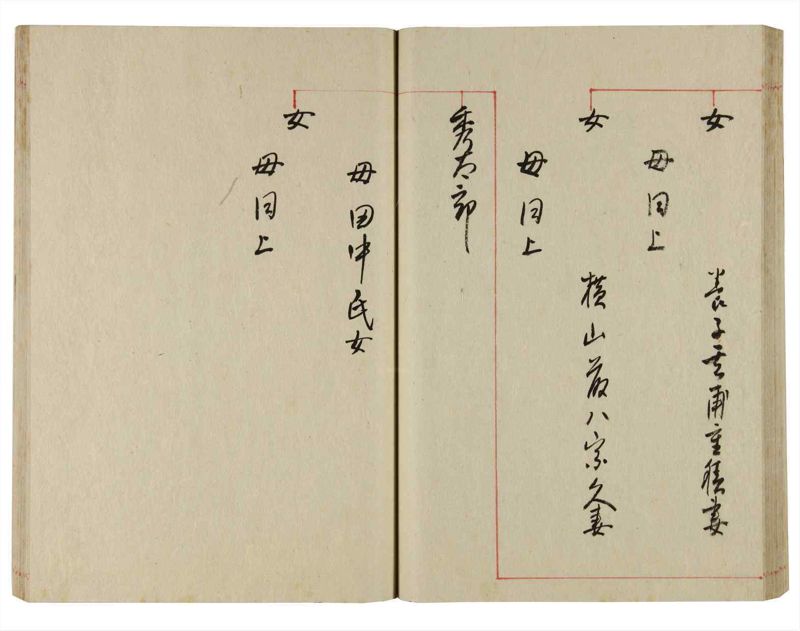 女
母同上
養子要甫重積妻
女
母同上
横山蔵八宗久妻
秀太郎
母田中氏女
女
母同上